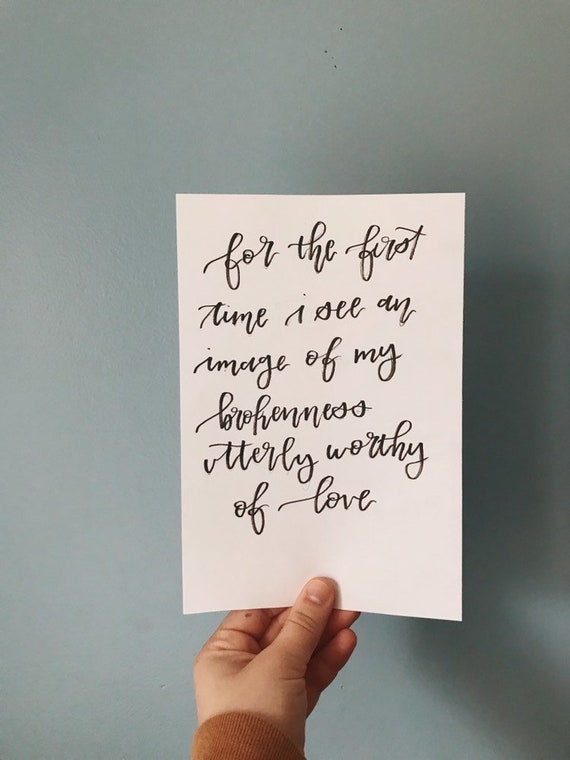 for the first
time i see an
image of my
brokenness
utterly worthy
of love